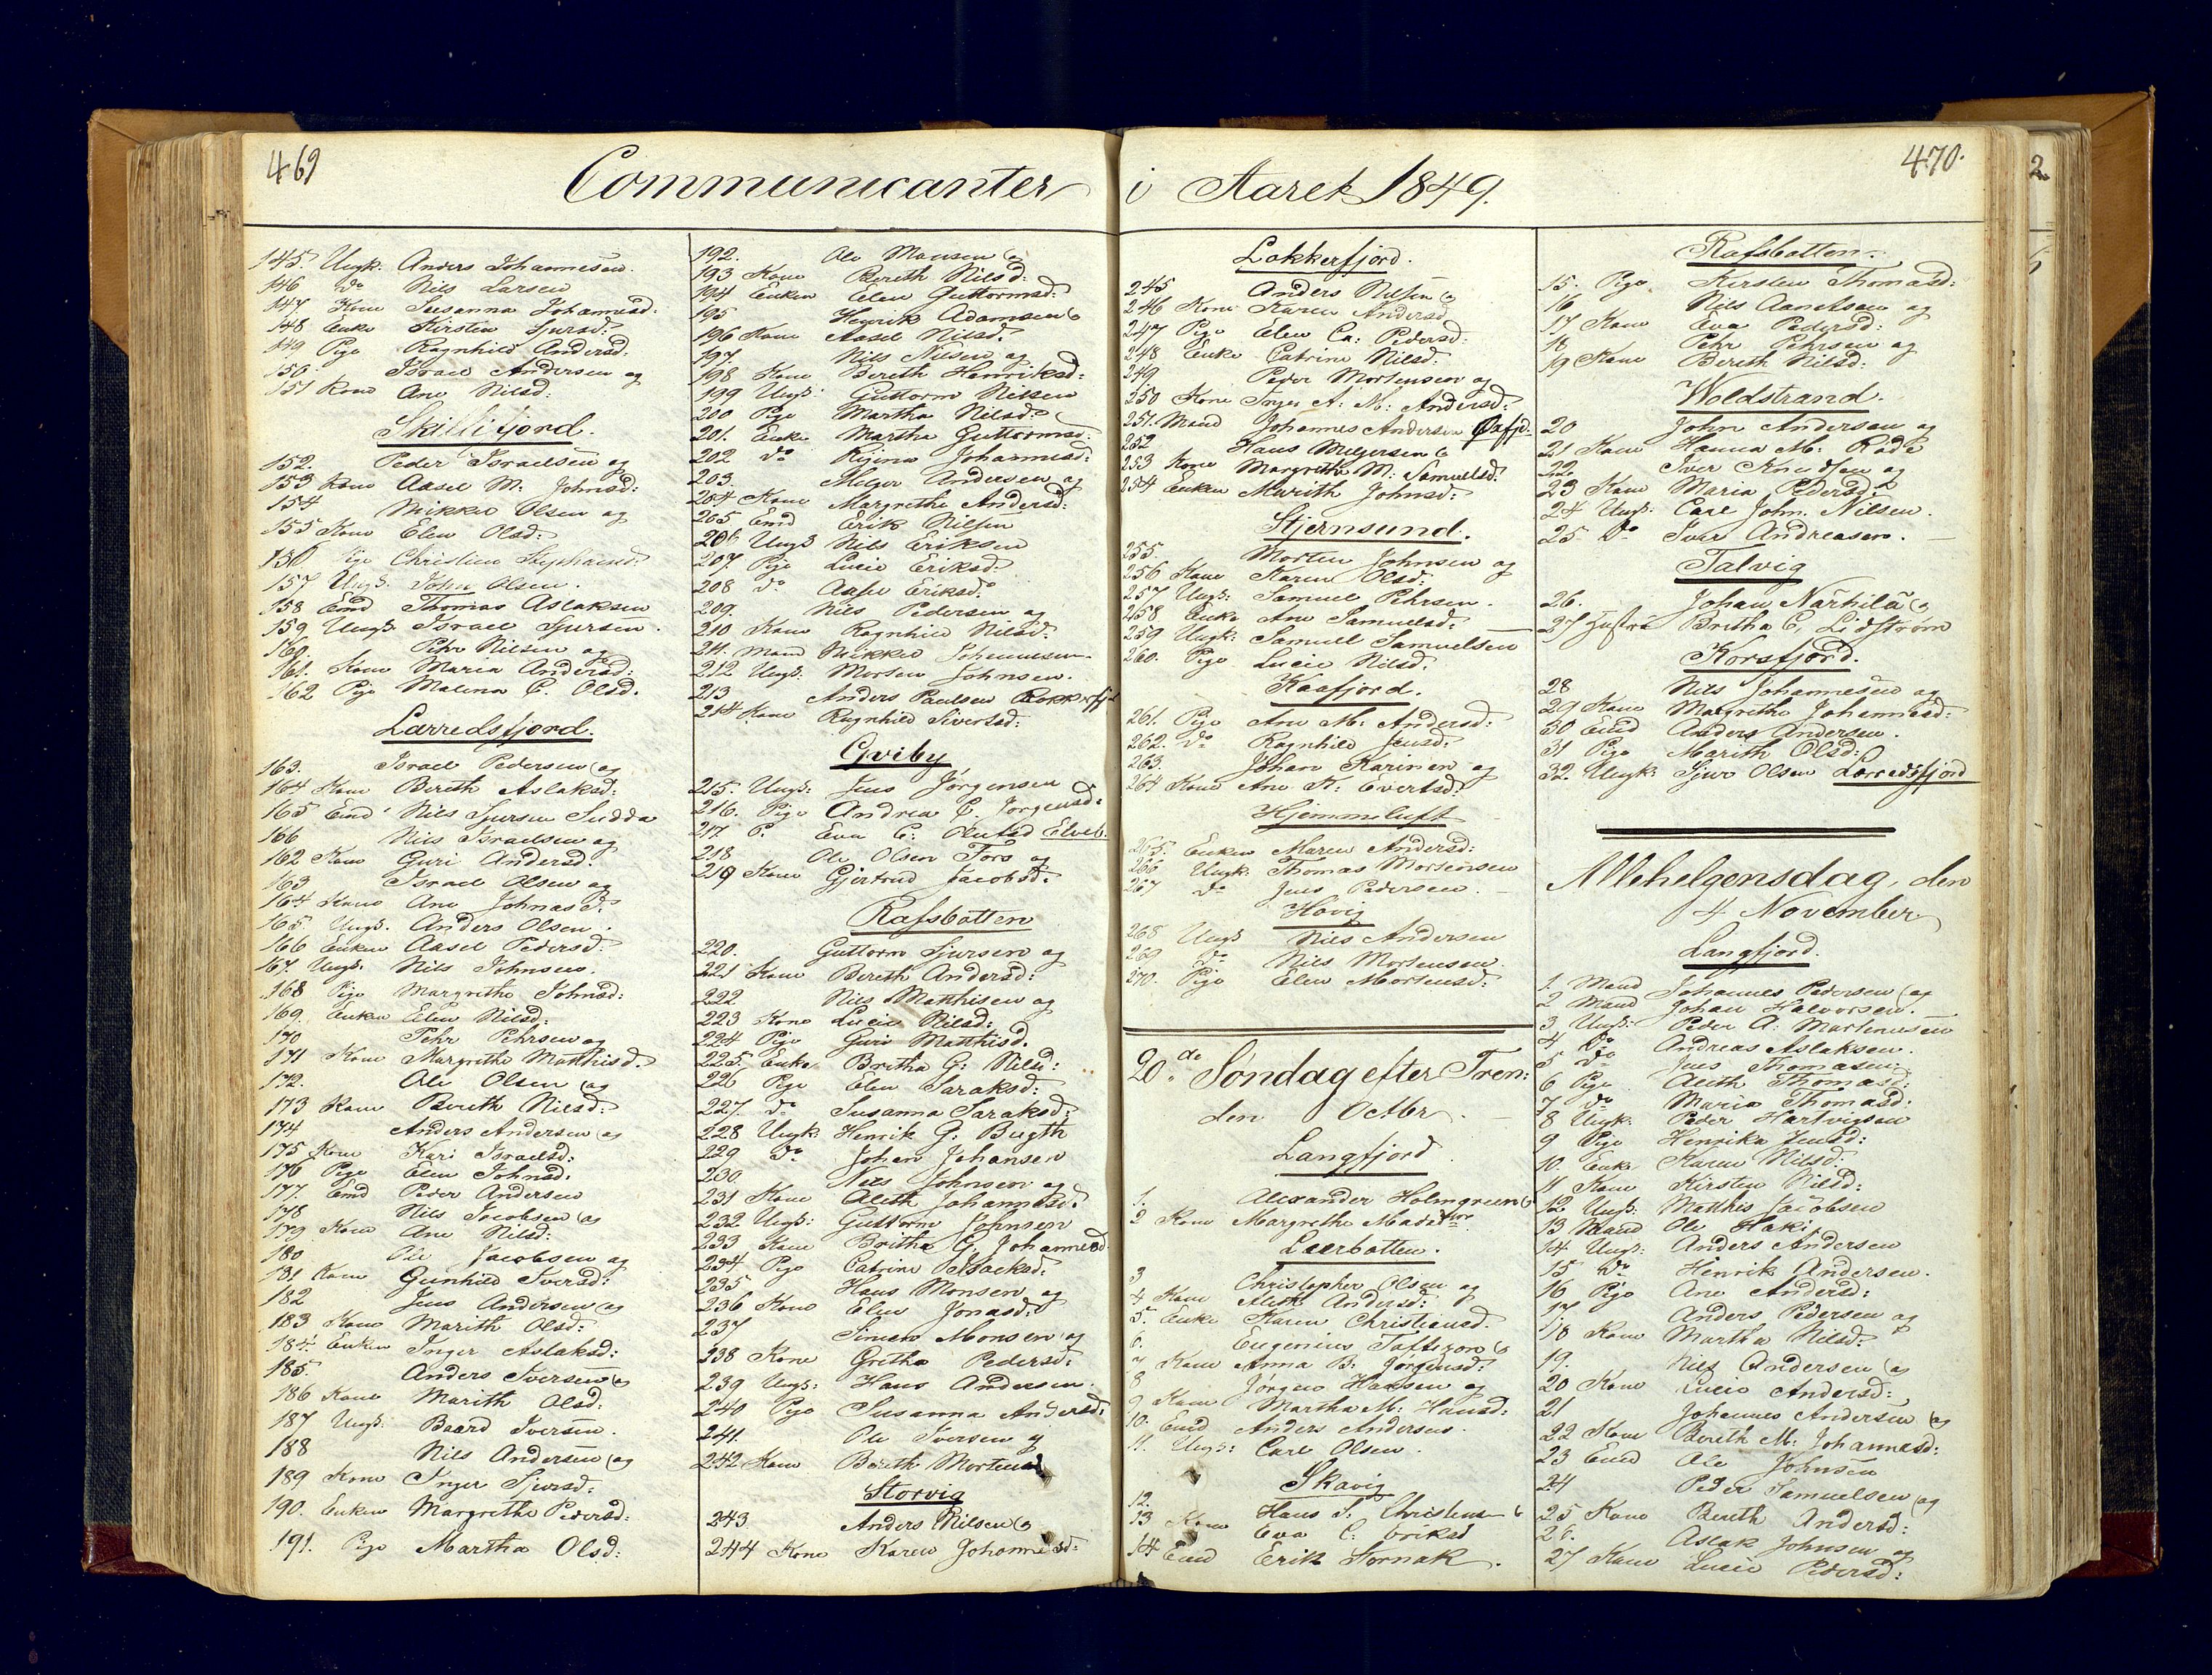 469
Communicanter
145 Ungk. Anders Johannesen.
146 Do Nils Larsen
147 Kone Susanna Johannesd.
148 Enke Kirsten Sjursd:
149 Pige Ragnhild Andersd.
150. Israel Andersen og
151 Kone Ane Nilsd:
Skillifjord.
152. Peder Israelsen og
153 Kone Aasel M: Johnsd:
154 Mikkel Olsen og
155 Kone Elen Olsd:
156 Pige Christine Stephansd:
157 Ungk. John Olsen.
158 Emd Thomas Aslaksen
159 Ungk. Israel Sjursen.
160. Pehr Nilsen og
161. Kone Maria Andersd:
162 Pige Malena C. Olsd.
Larredsfjord.
163. Israel Pedersen og
164 Kone Bereth Aslaksd:
165 Emd Nils Sjursen Sudda
166 Nils Israelsen og
162 Kone Guri Andersd:
163 Israel Olsen og
164 Kone Ane Johnsd:
165. Ungk. Anders Olsen.
166 Enken Aasel Pedersd:
167. Ungk. Nils Johnsen.
168 Pige Margrethe Johnsd:
169. Enken Elen Nilsd:
170 Pehr Pehrsen og
171 Kone Margrethe Matthisd.
172. Ole Olsen og
173 Kone Bereth Nilsd:
174 Anders Andersen og
175 Kone Kari Israelsd:
176 Pige Elen Johnsd:
177. Emd Peder Andersen
178 Nils Jacobsen og
179 Kone Ane Nilsd:
180 Ole Jacobsen og
181 Kone Gunhild Iversd:
182 Jens Andersen og
183 Kone Marith Olsd:
184. Enken Inger Aslaksd:
185. Anders Iversen og
186 Kone Marith Olsd:
187 Ungk. Baard Iversen.
188 Nils Andersen og
189 Kone Inger Sjursd:
190. Enken Margrethe Pedersd:
191. Pige Martha Olsd:
192. Ole Monsen og
193 Kone Bereth Nilsd:
194 Enken Elen Guttormsd:
195 Henrik Adamsen og
196 Kone Aasel Nilsd.
197. Nils Nilsen og
198 Kone Bereth Henriksd:
199 Ungk: Guttorm Nilsen
200 Pige Martha Nilsd:
201. Enke Martha Guttormsd:
202 Do Rigina Johannesd:
203. Melger Andersen og
204 Kone Margrethe Andersd:
205 Emd Erik Nilsen
206 Ungk Nils Eriksen
207. Pige Lucie Eriksd:
208 Do Aasel Eriksd:
209. Nils Pedersen og
210 Kone Ragnhild Nilsd:
211. Mand Mikkel Johannesen
212 Ungk. Morten Johnsen.
213 Anders Paulsen
214 Kone Ragnhild Siversd:
Qviby
215. Ungk: Jens Jørgensen
216. Pige Andrea C. Jørgensd:
217 P. Eva C: Olutsd Elveb.
218 Ole Olsen Fors og
219 Kone Gjertrud Jacobsd.
Rafsbotten
220. Guttorm Sjursen og
221 Kone Bereth Andersd:
222 Nils Matthisen og
223 Kone Lucie Nilsd:
224 Pige Guri Matthisd.
225. Enke Britha G: Nilsd:
226 Pige Elen Saraksd:
227. Do Susanna Saraksd:
228 Ungk: Henrik G: Bugth
229 Do Johan Johansen
230. Nils Johnsen og
231 Kone Aleth Johannesd:
232 Ungk: Guttorm Johnsen
233 Kone Britha G. Johannesd
234 Pige Catrine Isaksd:
235 Hans Monsen og
236 Kone Elen Jonasd:
237 Simen Monsen og
238 Kone Grethe Pedersd:
239 Ungk: Hans Andersen.
240 Pige Susanna Andersd:
241. Ole Iversen og
242 Kone Bereth Mortensd
Storvig
243 Anders Nilsen og
244 Kone Karen Johannesd:
i Aaret 1849.
470.
Lokkerfjord.
245 Anders Nilsen og
246 Kone Karen Andersd
247 Pige Elen Ca: Pedersd:
248 Enke Catrine Nilsd:
249 Peder Mortensen og
250 Kone Inger A: M: Andersd:
251. Mand Johannes Andersen
252 Hans Melgersen og
253 Kone Margrethe M: Samuelsd:
254 Enken Marith Johnsd:
Stjernsund.
255. Morten Johnsen og
256 Kone Karen Olsd:
257 Ungk: Samuel Pehrsen.
258 Enke Ane Samuelsd:
259 Ungk: Samuel Samuelsen
260. Pige Lucie Nilsd.
Kaafjord.
261. Pige Ane M: Andersd:
262. Do Ragnhild Jensd:
263. Johan Karinen og
264 Kone Ane K: Evertsd:
Hjemmeluft
265. Enken Maren Andersd:
266 Ungk. Thomas Mortensen
267 Do Jens Pedersen.
Havig
268 Ungk Nils Andersen
269 Do Nils Mortensen.
270. Pige Elen Mortensd:
20de Søndag efter Tren:
den Octbr.
Langfjord
1. Alexander Holmgreen og
2 Kone Margrethe
Leerbotten.
3 Christopher Olsen og
4 Kone Aleth Andersd:
5. Enke Karen Christensd.
6. Eugenius Taftezon og
7 Kone Anna B: Jørgensd:
8 Jørgen Hansen og
9 Kone Martha M: Hansd:
10. Emd Anders Andersen.
11. Ungk: Carl Olsen.
Skavig
12. Hans S: Christensen og
13 Kone Eva C: Eriksd
14 Emd Erik Kornak.
Rafsbotten.
15. Pige Kirsten Thomasd:
16 Nils Aanetsen og
17 Kone Eva Pedersd:
18 Pehr Pehrsen og
19 Kone Bereth Nilsd:
Woldstrand.
20 John Andersen og
21 Kone Hanna M: Rode
22. Iver Knudsen og
23 Kone Maria Pedersd:
24 Ungk: Carl John. Nilsen.
25 Do Iver Andreasen.
Talvig
26. Johan Närhilä og
27 Hustru Britha C. Lidstrøm
Korsfjord.
28 Nils Johannesen og
29 Kone Margrethe Johannesd:
30 Emd Anders Andersen.
31 Pige Marith Olsd:
32. Ungk: Sjur Olsen Lærredsfjord
Allehelgensdag, den
4 November
Langfjord.
1. Mand Johannes Pedersen og
2 Mand Johan Halvorsen.
3, Ungk: Peder A: Martinusen
4 Do Andreas Aslaksen.
5 Do Jens Thomasen.
6 Pige Aleth Thomasd:
7 Do Maria Thomasd:
8 Ungk. Peder Hartvigsen
9 Pige Henrika Jensd:
10. Enke Karen Nilsd:
11 Kone Kirsten Nilsd:
12 Ungk: Matthis Jacobsen
13 Mand Ole Haki
14. Ungk: Anders Andersen
15 Do Henrik Andersen.
16 Pige Ane Andersd:
17 Anders Pedersen og
18 Kone Martha Nilsd:
19. Nils Andersen og
20 Kone Lucie Andersd:
21 Johannes Andersen og
22 Kone Bereth M: Johannesd:
23 Emd Ole Johnsen
24 Peder Samuelsen og
25 Kone Bereth Andersd:
26. Aslak Johnsen og
27 Kone Lucie Pedersd: